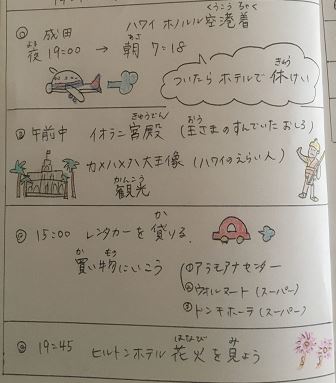 ① 成田 ハワイ ホノルル 空港着
くうこう ちゃく
よる あさ
夜 19:00 → 朝 7:18
きゅう
ついたら ホテルで 休けい
② 午前中 イオラニ 宮殿 (王さまの すんでいた おしろ)
きゅうでん おう
カメハメハ大王像 (ハワイのえらい人)
かんこう
観光
か
③ 15:00 レンタカーを 貸りる。
か もの
買い物にいこう (①アラモアナセンター
②ウォルマート(スーパー)
③ドンキホーテ(スーパー)
はなび み
④ 19:45 ヒルトンホテル 花火を見よう